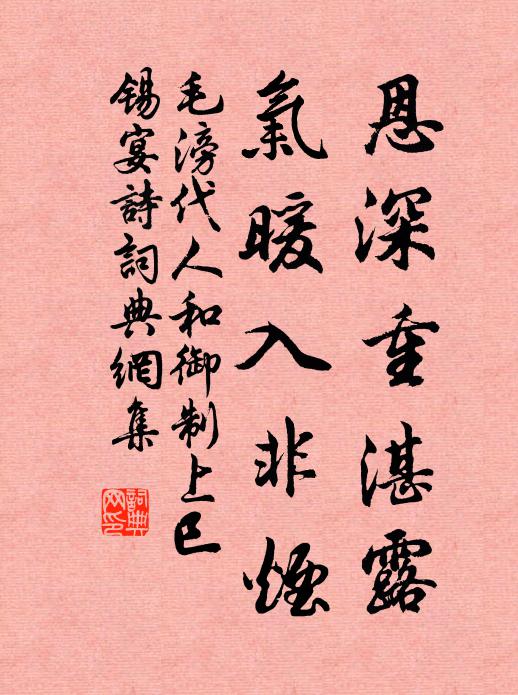 恩深重湛露
氣暖入非煙
毛滂代人和御制上巳
錫宴詩詞典網集
詞典网印